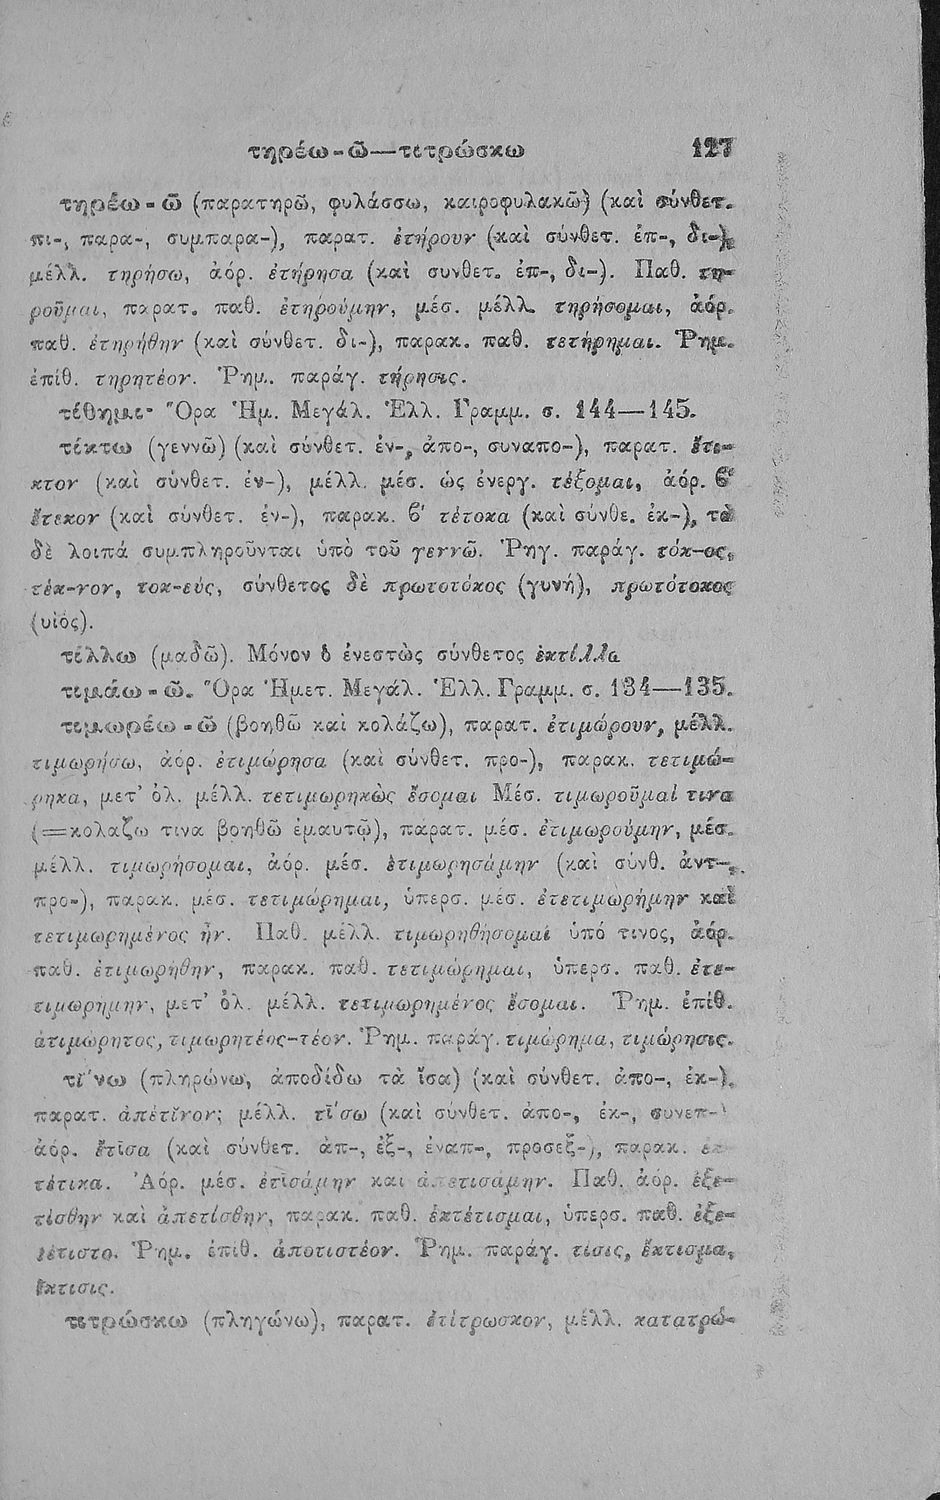 τηρέω-ῶ—τιτρώσκω 127
τηρέω-ῶ (παρατηρῶ, φυλάσσω, καιροφυλακῶ) (καὶ σύνθετ.
πι-, παρα-, συμπαρα-), παρατ. ἐτήρουν (καὶ σύνθετ. ἐπ-, δι-),
μέλλ. τηρήσω, ἀόρ. ἐτήρησα (καὶ συνθετ. ἐπ-, δι-). Παθ. τη-
ροῦμαι, παρατ. παθ. ἐτηρούμην, μέσ. μέλλ. τηρήσομαι, ἀόρ.
παθ. ἐτηρήθην (καὶ σύνθετ. δι-), παρακ. παθ. τετήρημαι. Ῥημ.
ἐπίθ. τηρητέον. Ῥημ. παράγ. τήρησις.
τίθημι· Ὅρα Ἡμ. Μεγάλ. Ἑλλ. Γραμμ. σ. 144—145.
τίκτω (γεννῶ) (καὶ σύνθετ. ἐν-, ἀπο-, συναπο-), παρατ. ἔτι-
κτον (καὶ σύνθετ. ἐν-), μέλλ. μέσ. ὡς ἐνεργ. τέξομαι, ἀόρ. ϐ′
ἔτεκον (καὶ σύνθετ. ἐν-), παρακ. ϐ′ τέτοκα (καὶ σύνθε. ἐκ-), τὰ
δὲ λοιπά συμπληροῦνται ὑπὸ τοῦ γεννῶ. Ῥηγ. παράγ. τόκ-ος,
τέκ-νον, τοκ-εύς, σύνθετος δὲ πρωτοτόκος (γυνή), πρωτότοκος
(υἱός).
τίλλω (μαδῶ). Μόνον ὁ ἐνεστὼς σύνθετος ἐκτίλλω
τιμάω-ῶ. Ὅρα Ἡμετ. Μεγάλ. Ἑλλ. Γραμμ. σ. 134—135.
τιμωρέω-ῶ (βοηθῶ καὶ κολάζω), παρατ. ἐτιμώρουν, μέλλ.
τιμωρήσω, ἀόρ. ἐτιμώρησα (καὶ σύνθετ. προ-), παρακ. τετιμώ-
ρηκα, μετ' ὀλ. μέλλ. τετιμωρηκὼς ἔσομαι Μέσ. τιμωροῦμαί τινα
(=κολαζω τινα βοηθῶ ἐμαυτῷ), παρατ. μέσ. ἐτιμωρούμην, μέσ.
μέλλ. τιμωρήσομαι, ἀόρ. μέσ. ἐτιμωρησάμην (καὶ σύνθ. ἀντ-,
προ-), παρακ. μέσ. τετιμώρημαι, ὑπερσ. μέσ. ἐτετιμωρήμην καὶ
τετιμωρημένος ἦν. Παθ. μέλλ. τιμωρηθήσομαί ὑπό τινος, ἀόρ.
παθ. ἐτιμωρήθην, παρακ. παθ. τετιμώρημαι, ὑπερσ. παθ. ἐτε-
τιμωρήμην, μετ' ὀλ. μέλλ. τετιμωρημένος ἔσομαι. Ῥημ. ἐπίθ.
ἀτιμώρητος, τιμωρητέος-τέον. Ῥημ. παράγ. τιμώρημα, τιμώρησις.
τί̄νω (πληρώνω, ἀποδίδω τὰ ἴσα) (καὶ σύνθετ. ἀπο-, ἐκ-),
παρατ. ἀπέτῑνον; μέλλ. τί̄σω (καὶ σύνθετ. ἀπο-, ἐκ-, συνεπ-)
ἀόρ. ἔτῑσα (καὶ σύνθετ. ἀπ-, ἐξ-, ἐναπ-, προσεξ-), παρακ. ἐκ-
τέτικα. Ἀόρ. μέσ. ἐτῑσάμην και ἀπετισάμην. Παθ. ἀόρ. ἐξε-
τίσθην καὶ ἀπετίσθην, παρακ. παθ. ἐκτέτισμαι, ὑπερσ. παθ. ἐξε-
τέτιστο. Ῥημ. ἐπιθ. ἀποτιστέον. Ῥημ. παράγ. τίσις, ἔκτισμα,
ἔκτισις.
τιτρώσκω (πληγώνω), παρατ. ἐτίτρωσκον, μέλλ. κατατρώ-